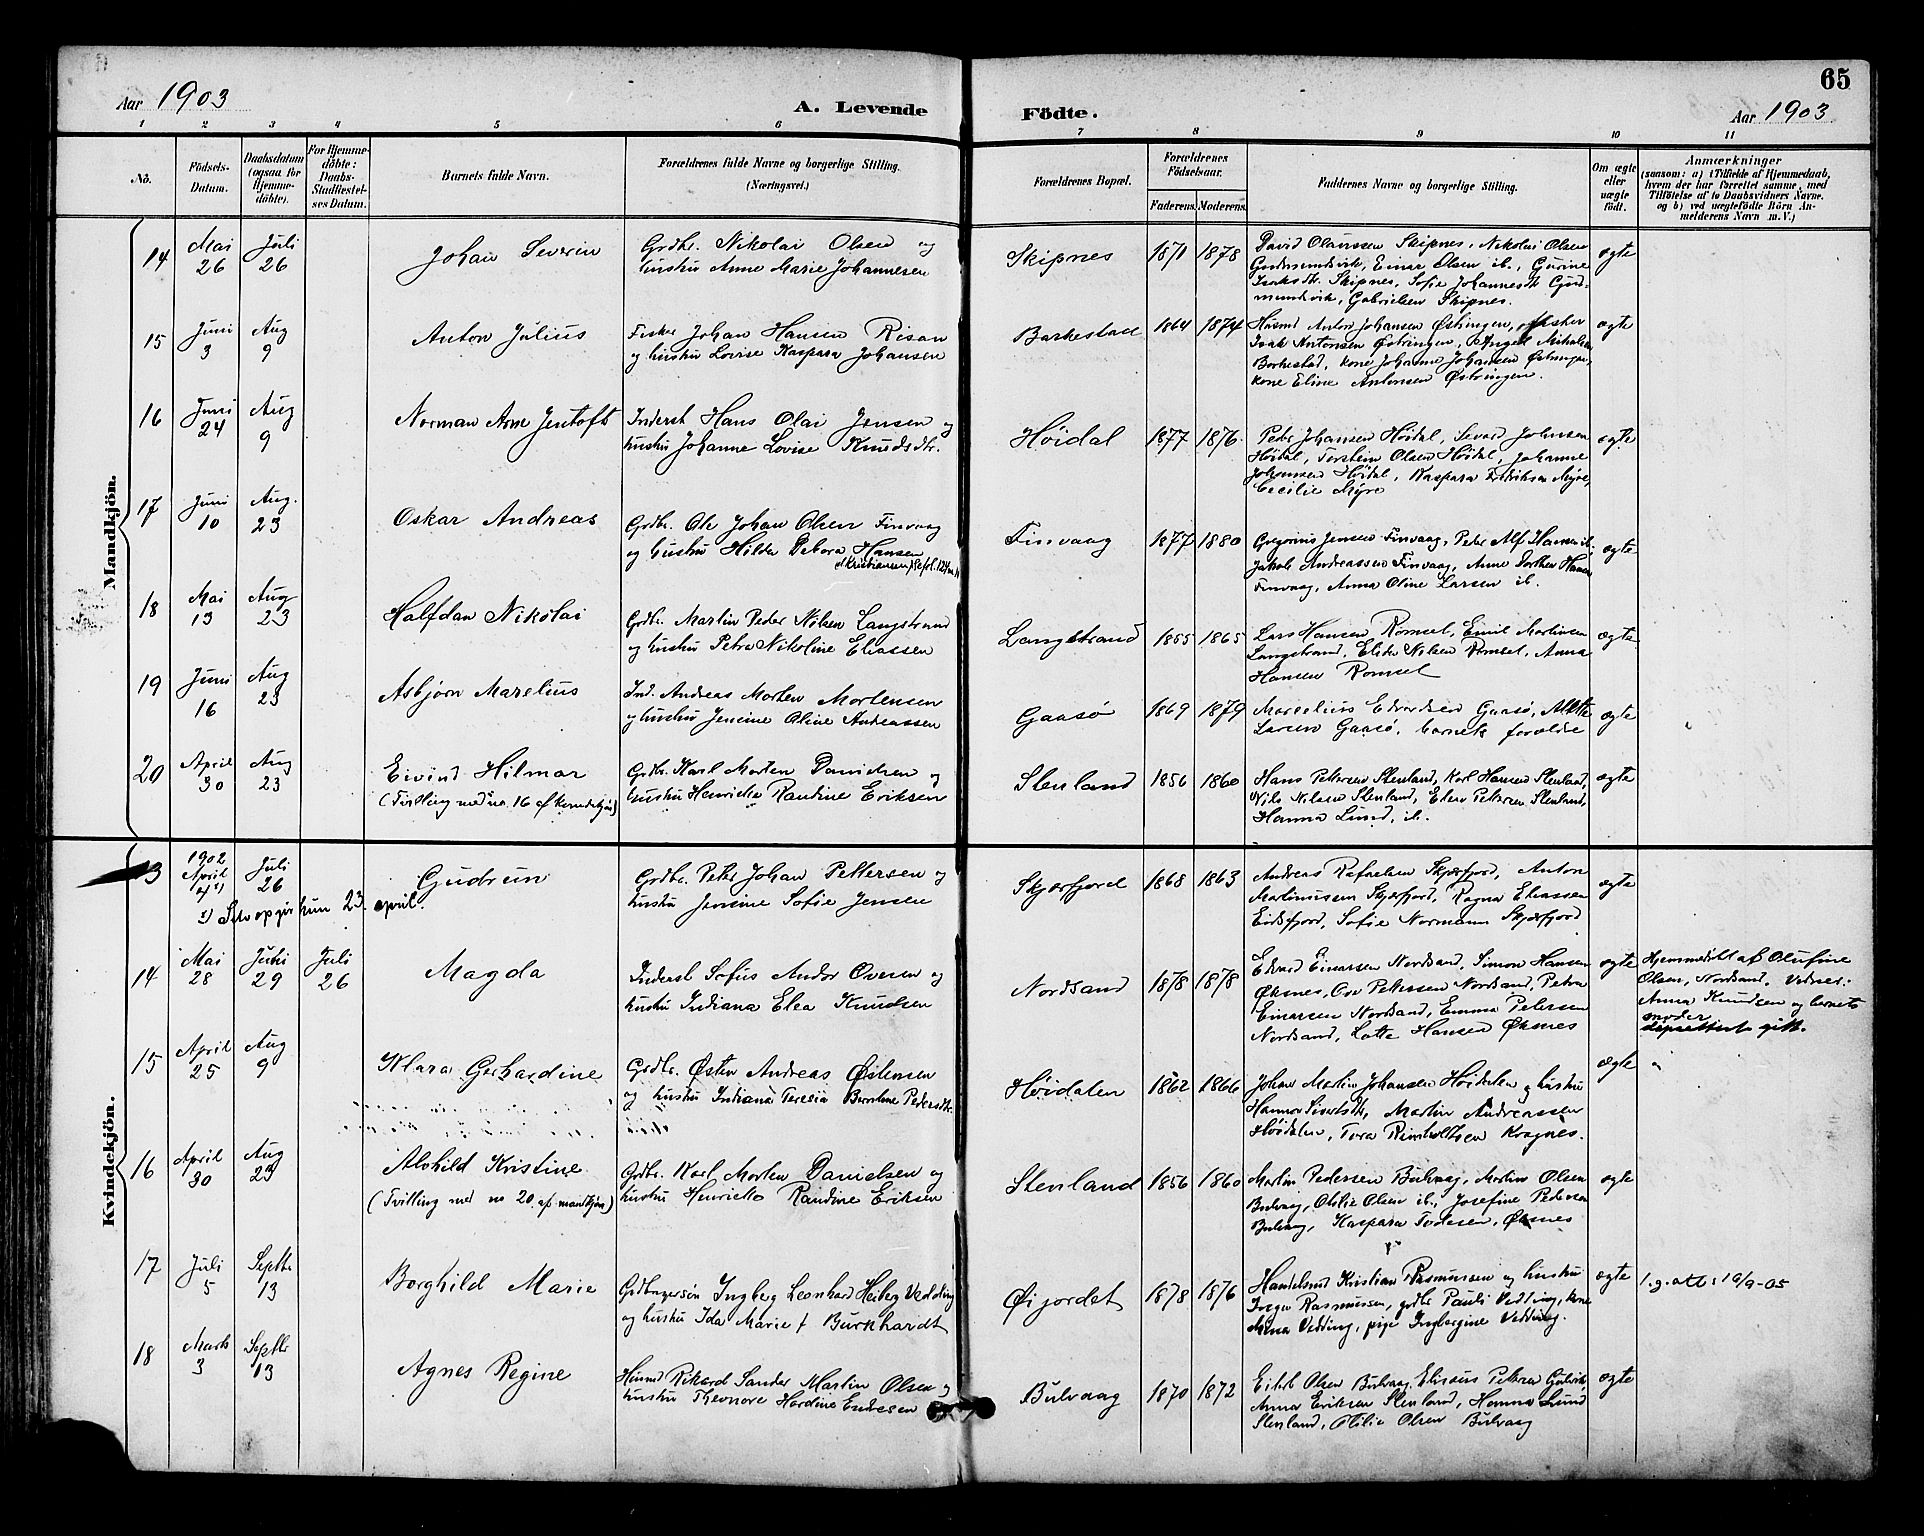 65
Aar 1903
A. Levende
Födte.
Aar 1903
1 2 3 4 5 6 7 8 9 10 11
No.
Födsels-
Datum.
Daabsdatum
(ogsaa for
Hjemme-
döbte).
For Hjemme-
döbte:
Daabs-
Stadfæstel-
ses Datum.
Barnets fulde Navn.
Forældrenes fulde Navne og borgerlige Stilling.
(Næringsvei.)
Forældrenes Bopæl.
Forældrenes
Födselsaar.
Faderens.
Moderens.
Faddernes Navne og borgerlige Stilling.
Om ægte
eller
uægte
födt.
Anmærkninger
(saasom: a) i Tilfælde af Hjemmedaab,
hvem der har forrettet samme, med
Tilföielse af to Daabsvidners Navne.
og b) ved uægtefödte Börn An-
melderens Navn m. V.)
Mandkjön.
14
Mai
26
Juli
26
Johan Severin
Grdbr. Nikolai Olsen og
hustru Anne Marie Johannesen
Skipnes
1871
1878
David Olaussen Skipnes, Nikolai Olsen
Gudmundsvik, Einar Olsen ib., Gurine
Isaksdtr. Skipnes, Sofie Johannesdt Gud-
mundsvik, Gabrielsen Skipnes.
ægte
15
Juni
3
Aug
9
Anton Julius
Fisker Johan Hansen Risan
og hustru Lovise Kaspara Johansen
Barkestad
1864
1874
Husmd Anton Johansen Østringen, fisker
Isak Antonsen Østringen, Angel Mikalsen
Borkestad, kone Johanne Johansen Østringen,
kone Eline Antonsen Østringen.
ægte
16
Juni
24
Aug
9
Norman Arne Jentoft
Inderst Hans Olai Jensen og
hustru Johanne Lovise Knudsdtr.
Høidal
1877
1876.
Peder Johansen Høidal, Sevard Johnsen
Høidal, Torstein Olsen Høidal, Johanne
Johansen Høidal, Kaspara Fredriksen Myre,
Cecilie Myre
ægte
17
Juni
10
Aug.
23
Oskar Andreas
Grdbr. Ole Johan Olsen Finvaag
og hustru Hilda Debora Hansen
Finvaag
1877
1880
Gregorius Jensen Finvaag, Peder Alf Hansen ib.,
Jakob Andreassen Finvaag, Anne Dorthea Hansen
Finvaag, Anna Oline Larsen ib.
ægte
18
Mai
13
Aug
23
Halfdan Nikolai
Grdbr. Martin Peder Nilsen Langstrand
og hustru Petra Nikoline Eliassen
Langstrand
1855
1865
Lars Hansen Romsel, Emil Martinsen
Langstrand, Elida Nilsen Romsel, Anna
Hansen Romsel
ægte
19
Juni
16
Aug
23
Asbjørn Marelius
Ind. Andreas Morten Mortensen
og hustru Jensine Oline Andreassen
Gaasø
1869
1879
Marselius Edvardsen Gaasø, Alette
Larsen Gaasø, barnets forældre
ægte
20
April
30
Aug
23
Eivind Hilmar
(Tvilling med no. 16 af kvindekjøn)
Grdbr. Karl Morten Danielsen og
hustru Henrikke Randine Eriksen
Stenland
1856
1860
Hans Pettersen Stenland, Karl Hansen Stenland,
Nils Nilsen Stenland, Elen Pettersen Stenland,
Hanna Lund, ib.
ægte
Kvindekjön.
13
1902
April
Juli
26
1) Selv opgir hun 23. april.
Gudrun
Grdbr. Peter Johan Pettersen og
hustru Jensine Sofie Jensen
Skjærfjord
1868
1863
Andreas Rafaelsen Skjærfjord, Anton
Martinussen Skjærfjord, Ragna Eliassen
Eidsfjord, Sofie Normann Skjærfjord
ægte
14
Mai
28
Juni
29
Juli
26
Magda
Inderst Sofus Andor Ovesen og
hustru Indiana Elea Knudsen
Nordsand
1878
1878
Edvard Einarsen Nordsand, Simon Hansen
Øksnes, Ove Pettersen Nordsand, Petra
Einarsen Nordsand, Emma Petersen
Nordsand, Lotte Hansen Øksnes
ægte
Hjemmedøbt af Olufine
Olsen, Nordsand. Vidner:
Anna Knudsen og barnets
moder
15
April
25
Aug
9
Klara Gerhardine
Grdbr. Østen Andreas Østensen
og hustru Indiana Teresia Berntine Pedersdtr.
Høidalen
1862
1866
Johan Martin Johansen Høidalen og hustru
Hanna Sivertsdtr, Martin Andreassen
Høidalen, Tora Reinholtsen Kragnes.
ægte
16
April
30
Aug
23
Alvhild Kristine
(Tvilling med no 20 af mandkjøn)
Grdbr. Karl Morten Danielsen og
hustru Henrikke Randine Eriksen
Stenland
1856
1860
Martin Pedersen Bulvaag, Martin Olsen
Bulvaag, Otilie Olsen ib., Josefine Pedersen
Bulvaag, Kaspara Todesen, Øksnes
ægte
17
Juli
5
Septbr
13
Borghild Marie
Grdbrugersøn Ingberg Leonhard Heiberg Vedding
og hustru Ida Marie f Burkhardt
Øijordet
1878
1876
Handelsmd Kristian Rasmussen og hustru
Inger Rasmussen, grdbr Pauli Vedding, kone
Mina Vedding, pige Ingbergine Vedding.
ægte
l.g. att: 19/9-05
18
Marts
3
Septbr
13
Agnes Regine
Husmd Rikard Sander Martin Olsen og
hustru Theonore Hardine Endresen
Bulvaag
1870
1872
Eilert Olsen Bulvaag, Elisæus Petersen Gulvik,
Anna Eriksen Stenland, Hanna Lund
Stenland, Otilie Olsen Bulvaag
ægte